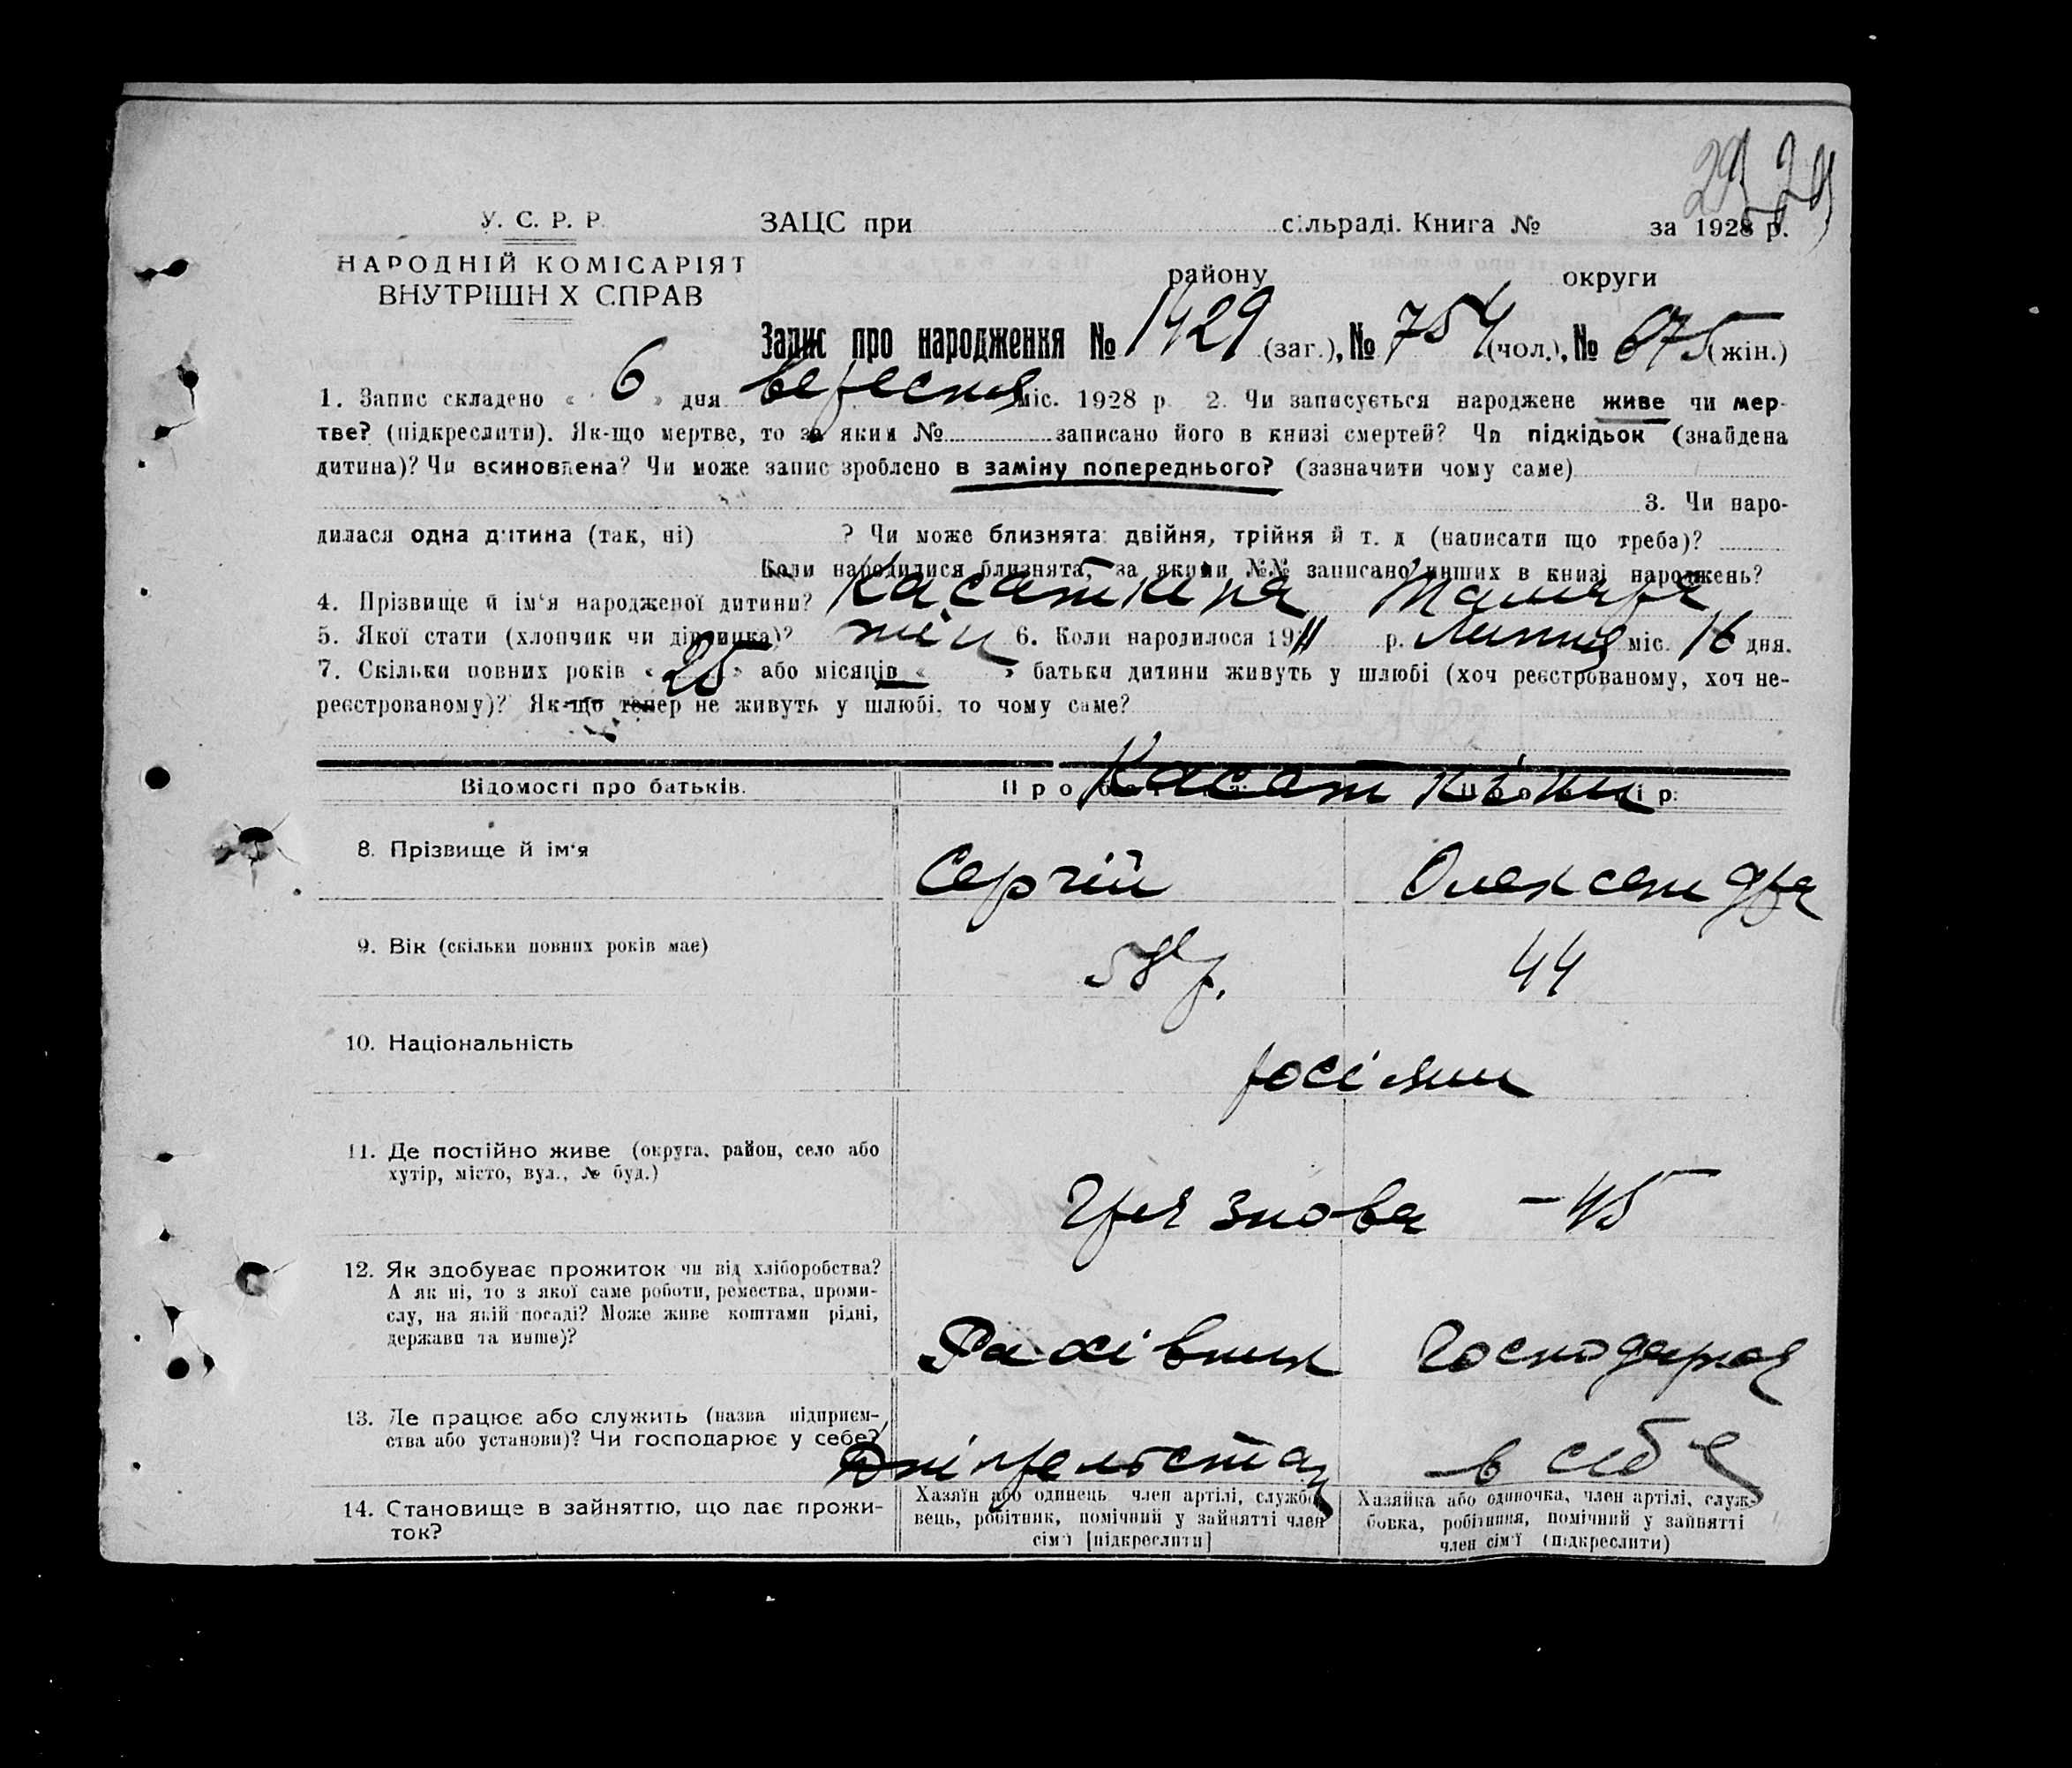 29 29
У. С. Р. Р.
ЗАЦС при сільраді. Книга № за 1928 р.
НАРОДНІЙ КОМІСАРІЯТ
ВНУТРІШН Х СПРАВ
району округи
Запис про народження № 1429 (заг.), № 754 (чол.), № 675 (жін.)
1. Запис складено « 6 » дня вересня міс. 1928 р. 2. Чи записується народжене живе чи мер-
тве? (підкреслити). Як-що мертве, то за яким № записано його в книзі смертей? Чи підкідьок (знайдена
дитина)? Чи всиновлена? Чи може запис зроблено в заміну попереднього? (зазначити чому саме)
3. Чи наро-
дилася одна дитина (так, ні) ? Чи може близнята: двійня, трійня й т. д (написати що треба)?
Коли народилися близнята, за якими №№ записано инших в книзі народжень?
4. Прізвище й ім'я народженої дитини? Касаткіна Тамара
5. Якої стати (хлопчик чи дівчинка)? жін 6. Коли народилося 1911 р. Липня міс. 16 дня.
7. Скільки повних років « 25 » або місяців « » батьки дитини живуть у шлюбі (хоч реєстрованому, хоч не-
реєстрованому)? Як-що тепер не живуть у шлюбі, то чому саме?
Касаткіни
Відомості про батьків.
8. Прізвище й ім'я Сергій Олександра
9. Вік (скільки повних років має) 58 р. 44
10. Національність росіяни
11. Де постійно живе (округа, район, село або
хутір, місто, вул., № буд.)
Грязнова – 45
12. Як здобуває прожиток чи від хліборобства?
А як ні, то з якої саме роботи, ремества, проми-
слу, на якій посаді? Може живе коштами рідні,
держави та инше)?
Рахівник Господарка
13. Де працює або служить (назва підприєм-
ства або установи)? Чи господарює у себе?
в себе
14. Становище в зайняттю, що дає прожи-
ток?
Хазяїн або одинець член артілі, службо-
вець, робітник, помічний у зайнятті член
сім'ї [підкреслити]
Хазяйка або одиночка, член артілі, служ-
бовка, робітниця, помічний у зайнятті
член сім'ї (підкреслити)